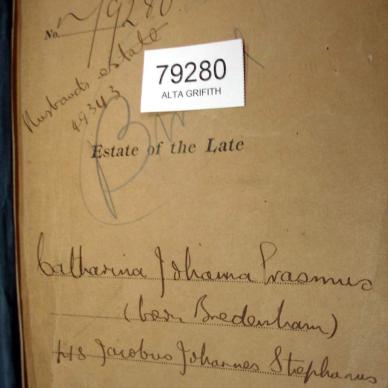 No. 79280
Husband's estate
49343
79280
ALTA GRIFITH
Estate of the Late
Catharina Johanna Erasmus
(born Bredenham)
s/s Jacobus Johannes Stephanus